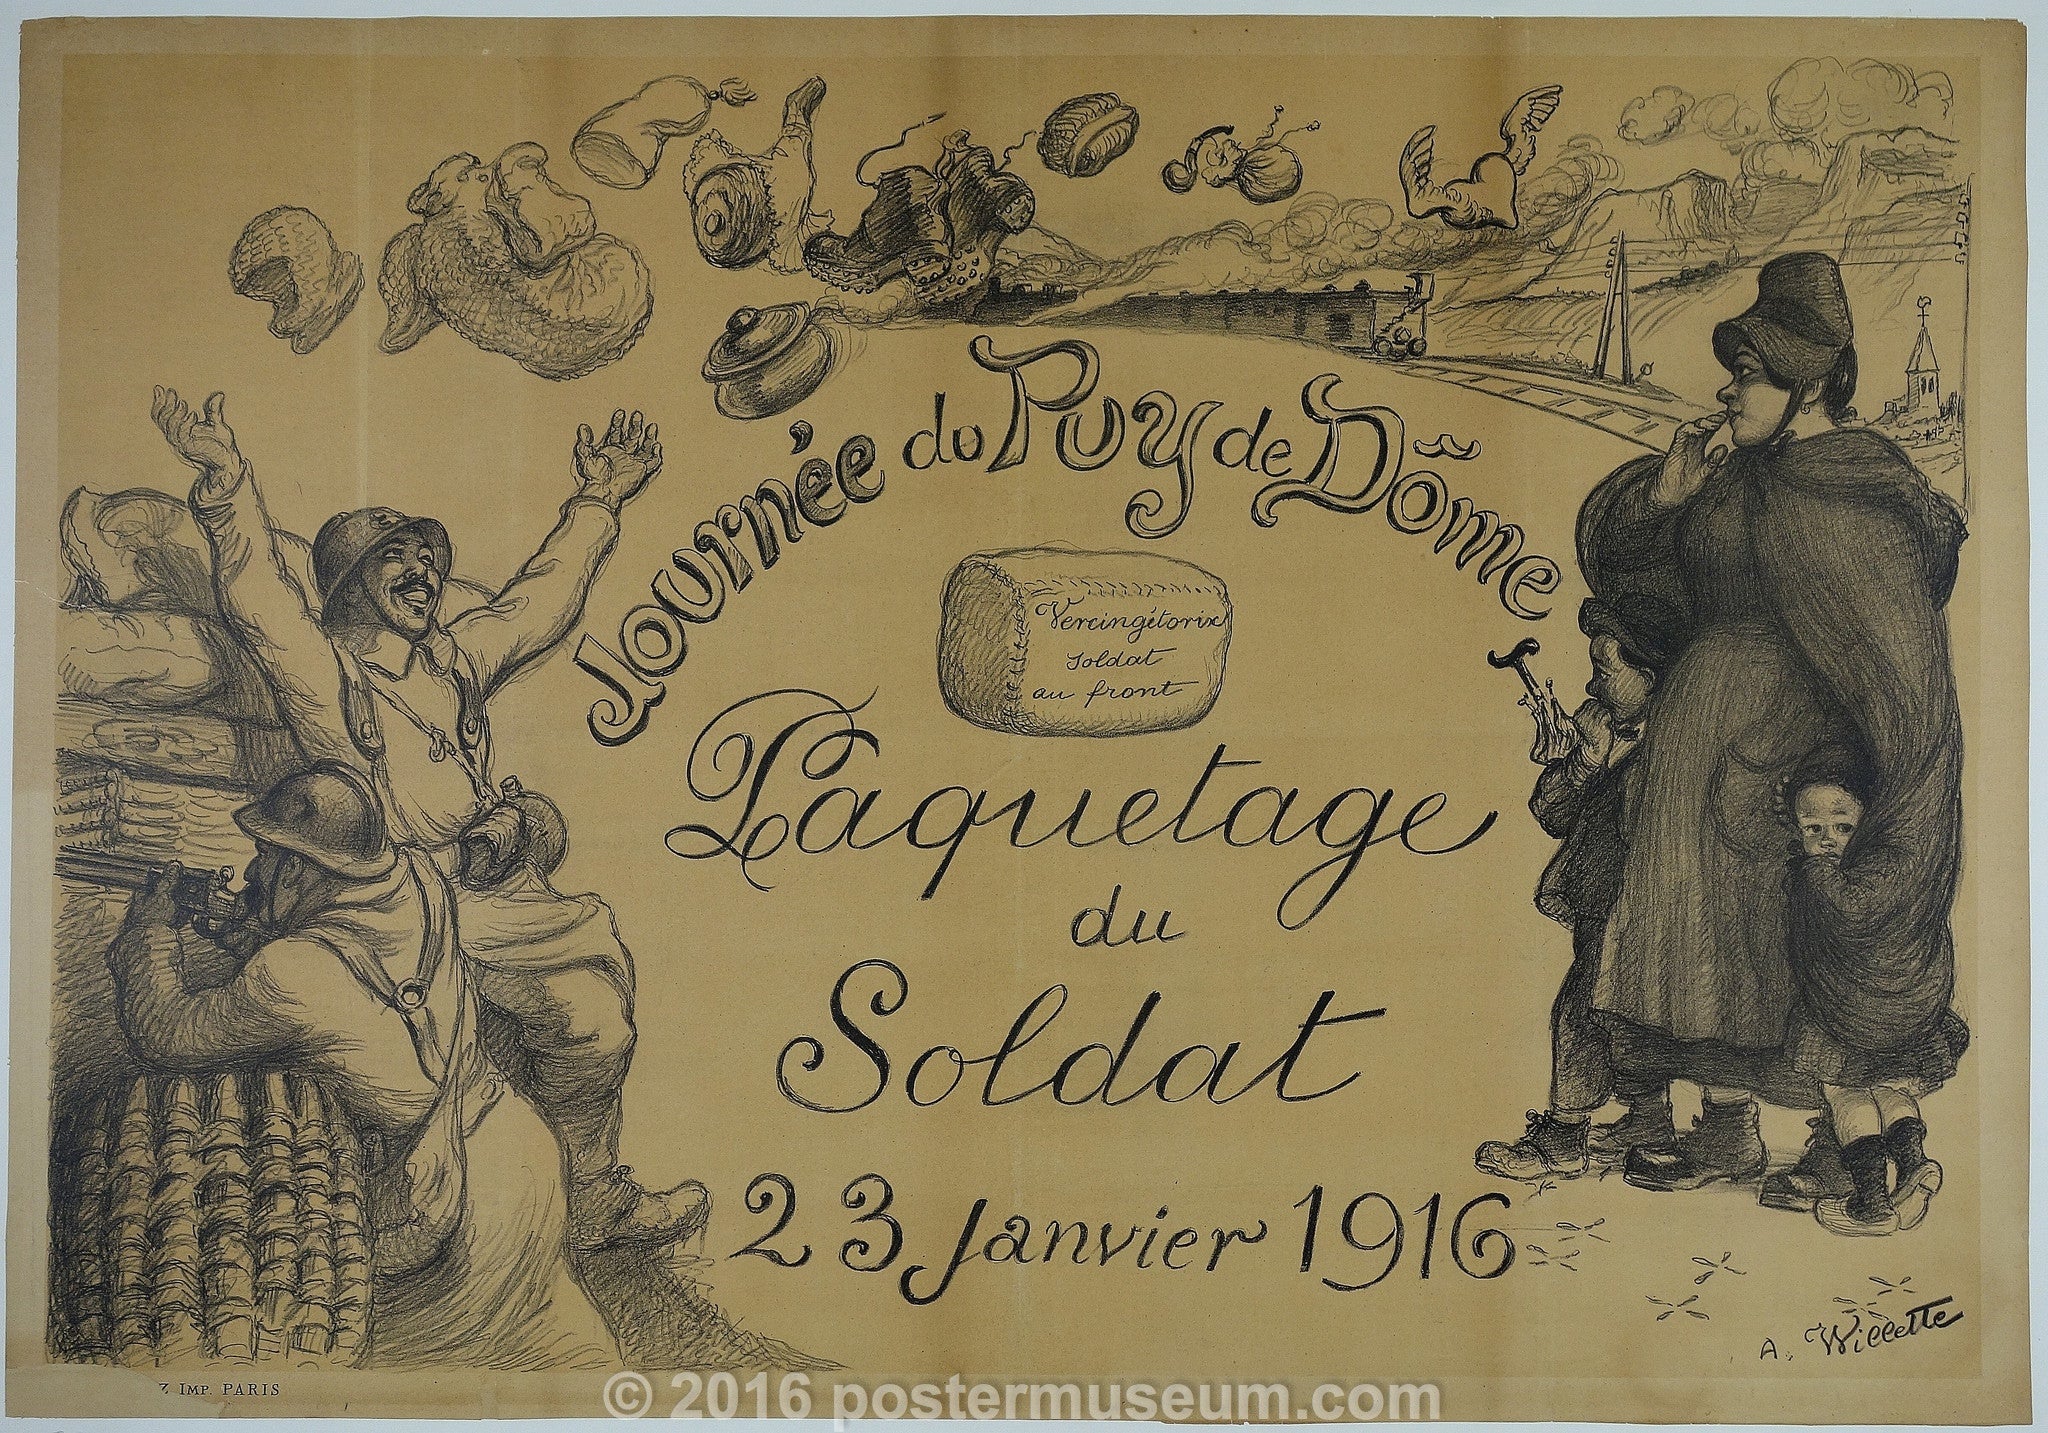 Journée du Puy de Dôme
Vercingétorix
soldat
au front
Paquetage
du
Soldat
23 janvier 1916
A. Willette
IMP. PARIS
© 2016 postermuseum.com